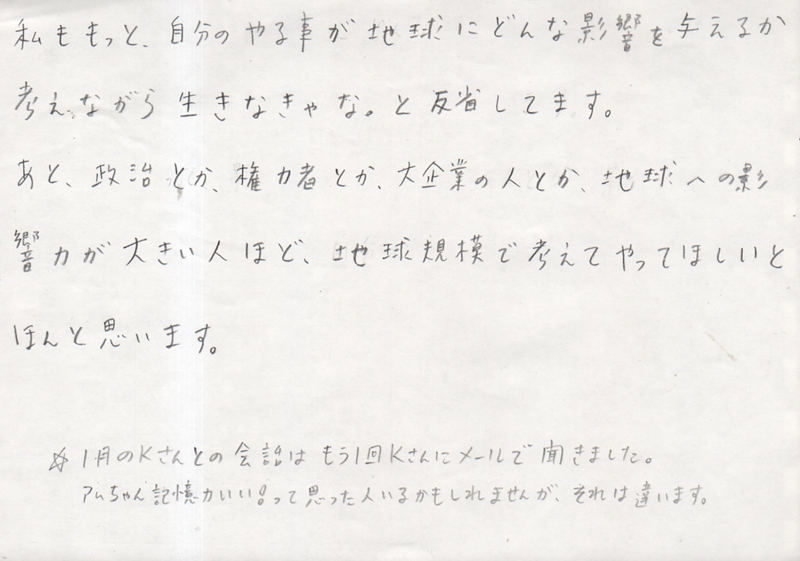 私ももっと、自分のやる事が地球にどんな影響を与えるか
考えながら生きなきゃな。と反省してます。
あと、政治とか、権力者とか、大企業の人とか、地球への影
響力が大きい人ほど、地球規模で考えてやってほしいと
ほんと思います。
☆ 1月のKさんとの会話はもう1回Kさんにメールで聞きました。
アムちゃん記憶力いい!って思った人いるかもしれませんが、それは違います。